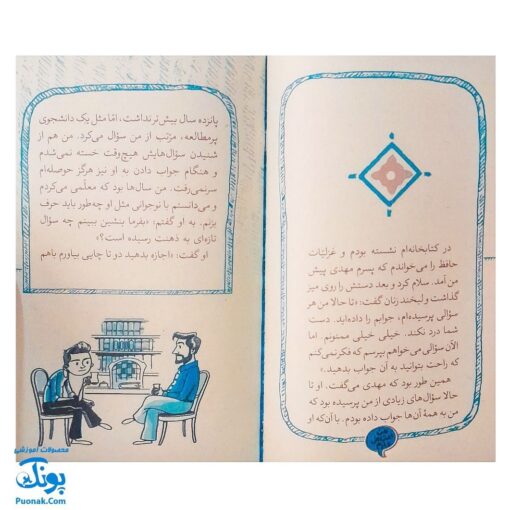 در کتابخانه‌ام نشسته بودم و غزلیّات
حافظ را می‌خواندم که پسرم مهدی پیش
من آمد. سلام کرد و بعد دستش را روی میز
گذاشت و لبخند زنان گفت: «تا حالا من هر
سؤالی پرسیده‌ام، جوابم را داده‌اید. دست
شما درد نکند. خیلی خیلی ممنونم. اما
الآن سؤالی می‌خواهم بپرسم که فکر نمی‌کنم
که راحت بتوانید به آن جواب بدهید.»
همین طور بود که مهدی می‌گفت. او تا
حالا سؤال‌های زیادی از من پرسیده بود که
من به همهٔ آن‌ها جواب داده بودم. با آن‌که او
پانزده سال بیش‌تر نداشت، امّا مثل یک دانشجوی
پرمطالعه، مرتّب از من سؤال می‌کرد. من هم از
شنیدن سؤال‌هایش هیچ‌وقت خسته نمی‌شدم
و هنگام جواب دادن به او نیز هرگز حوصله‌ام
سر نمی‌رفت. من سال‌ها بود که معلّمی می‌کردم
و می‌دانستم با نوجوانی مثل او چه‌طور باید حرف
بزنم. به او گفتم: «بفرما بنشین ببینم چه سؤال
تازه‌ای به ذهنت رسیده است؟»
او گفت: «اجازه بدهید دو تا چایی بیاورم باهم
محصولات آموزشی
پونک
Puonak.Com